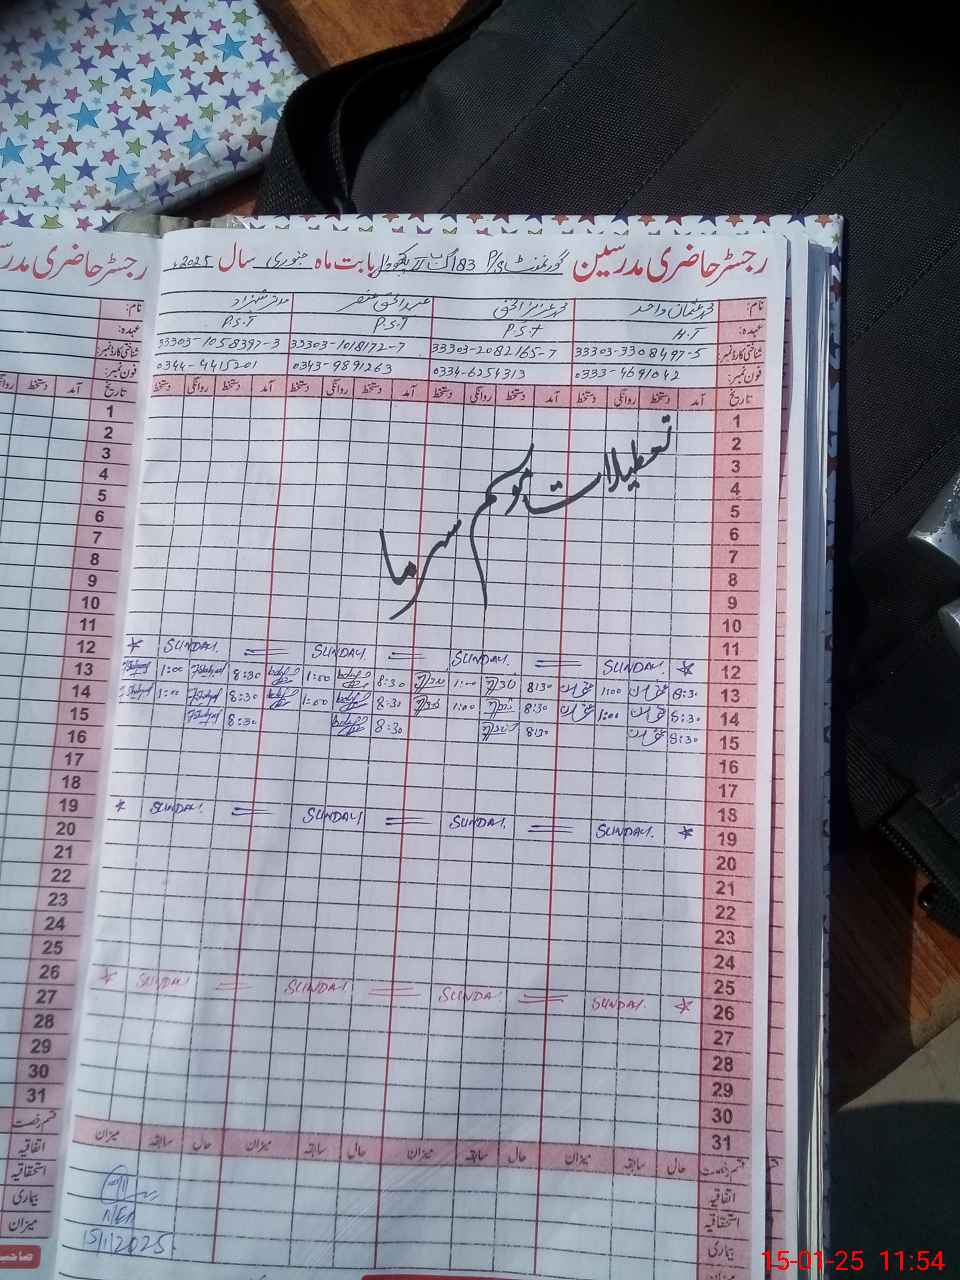 رجسٹر حاضری مدرسین گورنمنٹ P/S 183 گ ب II بابت ماہ جنوری سال 2025ء
رجسٹر حاضری مدر
نام: محمد عثمان واحد محمد عزیز الحق عبدالحق
عہدہ: H.T P.S.T P.S.T P.S.T
شناختی کارڈ نمبر: 33303-3308497-5 33303-2082165-7 33303-1018172-7 33303-1058397-3
فون نمبر: 0333-4691042 0334-6254313 0343-9891263 0344-4415201
تاریخ آمد دستخط روانگی دستخط آمد دستخط روانگی دستخط آمد دستخط روانگی دستخط آمد دستخط روانگی دستخط
تاریخ آمد دستخط روانگی
1
2
3
4
5
6
7
8
9
10
11
تعطیلات موسم سرما
12 * SUNDAY. = SUNDAY. = SUNDAY. = SUNDAY. *
13 8:30 1:00 8:30 1:00 8:30 1:00 8:30 1:00
14 8:30 1:00 8:30 1:00 8:30 1:00 8:30 1:00
15 8:30 8:30 8:30 8:30
16
17
18
19 * SUNDAY. = SUNDAY. = SUNDAY = SUNDAY. *
20
21
22
23
24
25
26 * SUNDAY. = SUNDAY = SUNDAY = SUNDAY *
27
28
29
30
31
قسم رخصت حال سابقہ میزان حال سابقہ میزان حال سابقہ میزان حال سابقہ میزان
اتفاقیہ
استحقاقیہ
بیماری
میزان
15/1/2025
1
2
3
4
5
6
7
8
9
10
11
12
13
14
15
16
17
18
19
20
21
22
23
24
25
26
27
28
29
30
31
قسم رخصت
اتفاقیہ
استحقاقیہ
بیماری
میزان
صاحب
15-01-25 11:54